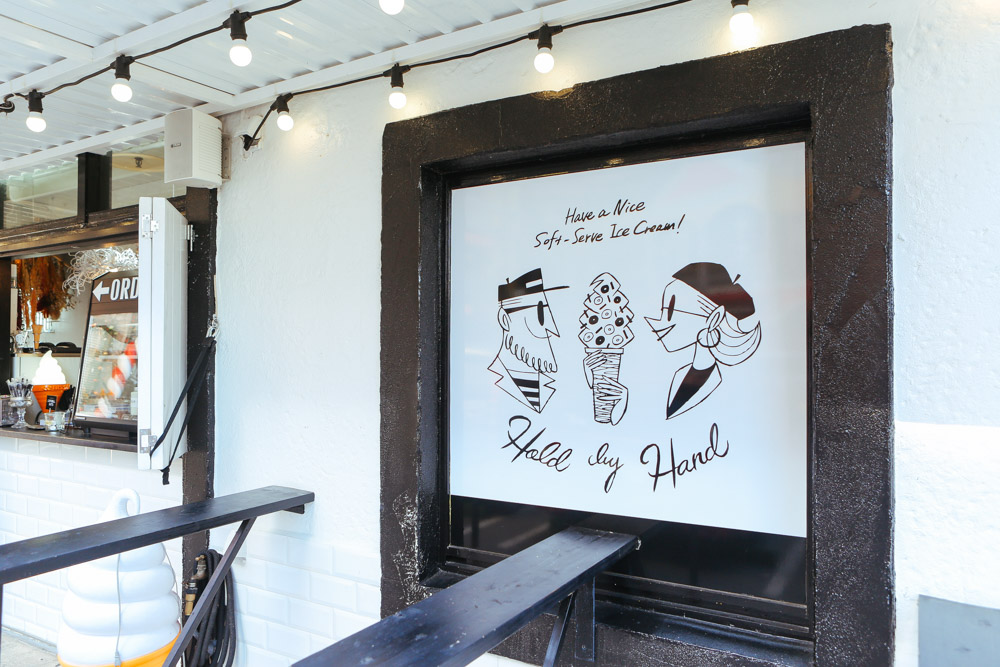 Have a Nice
Soft-Serve Ice Cream!
Hold by Hand
←ORD